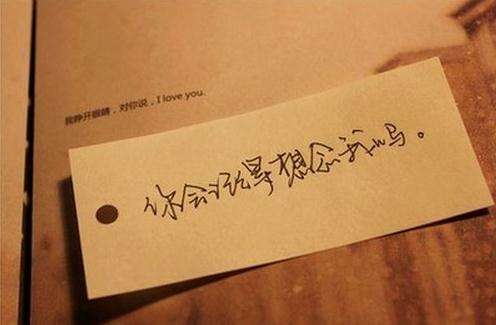 我睁开眼睛，对你说，I love you.
你会经常想念我吗。